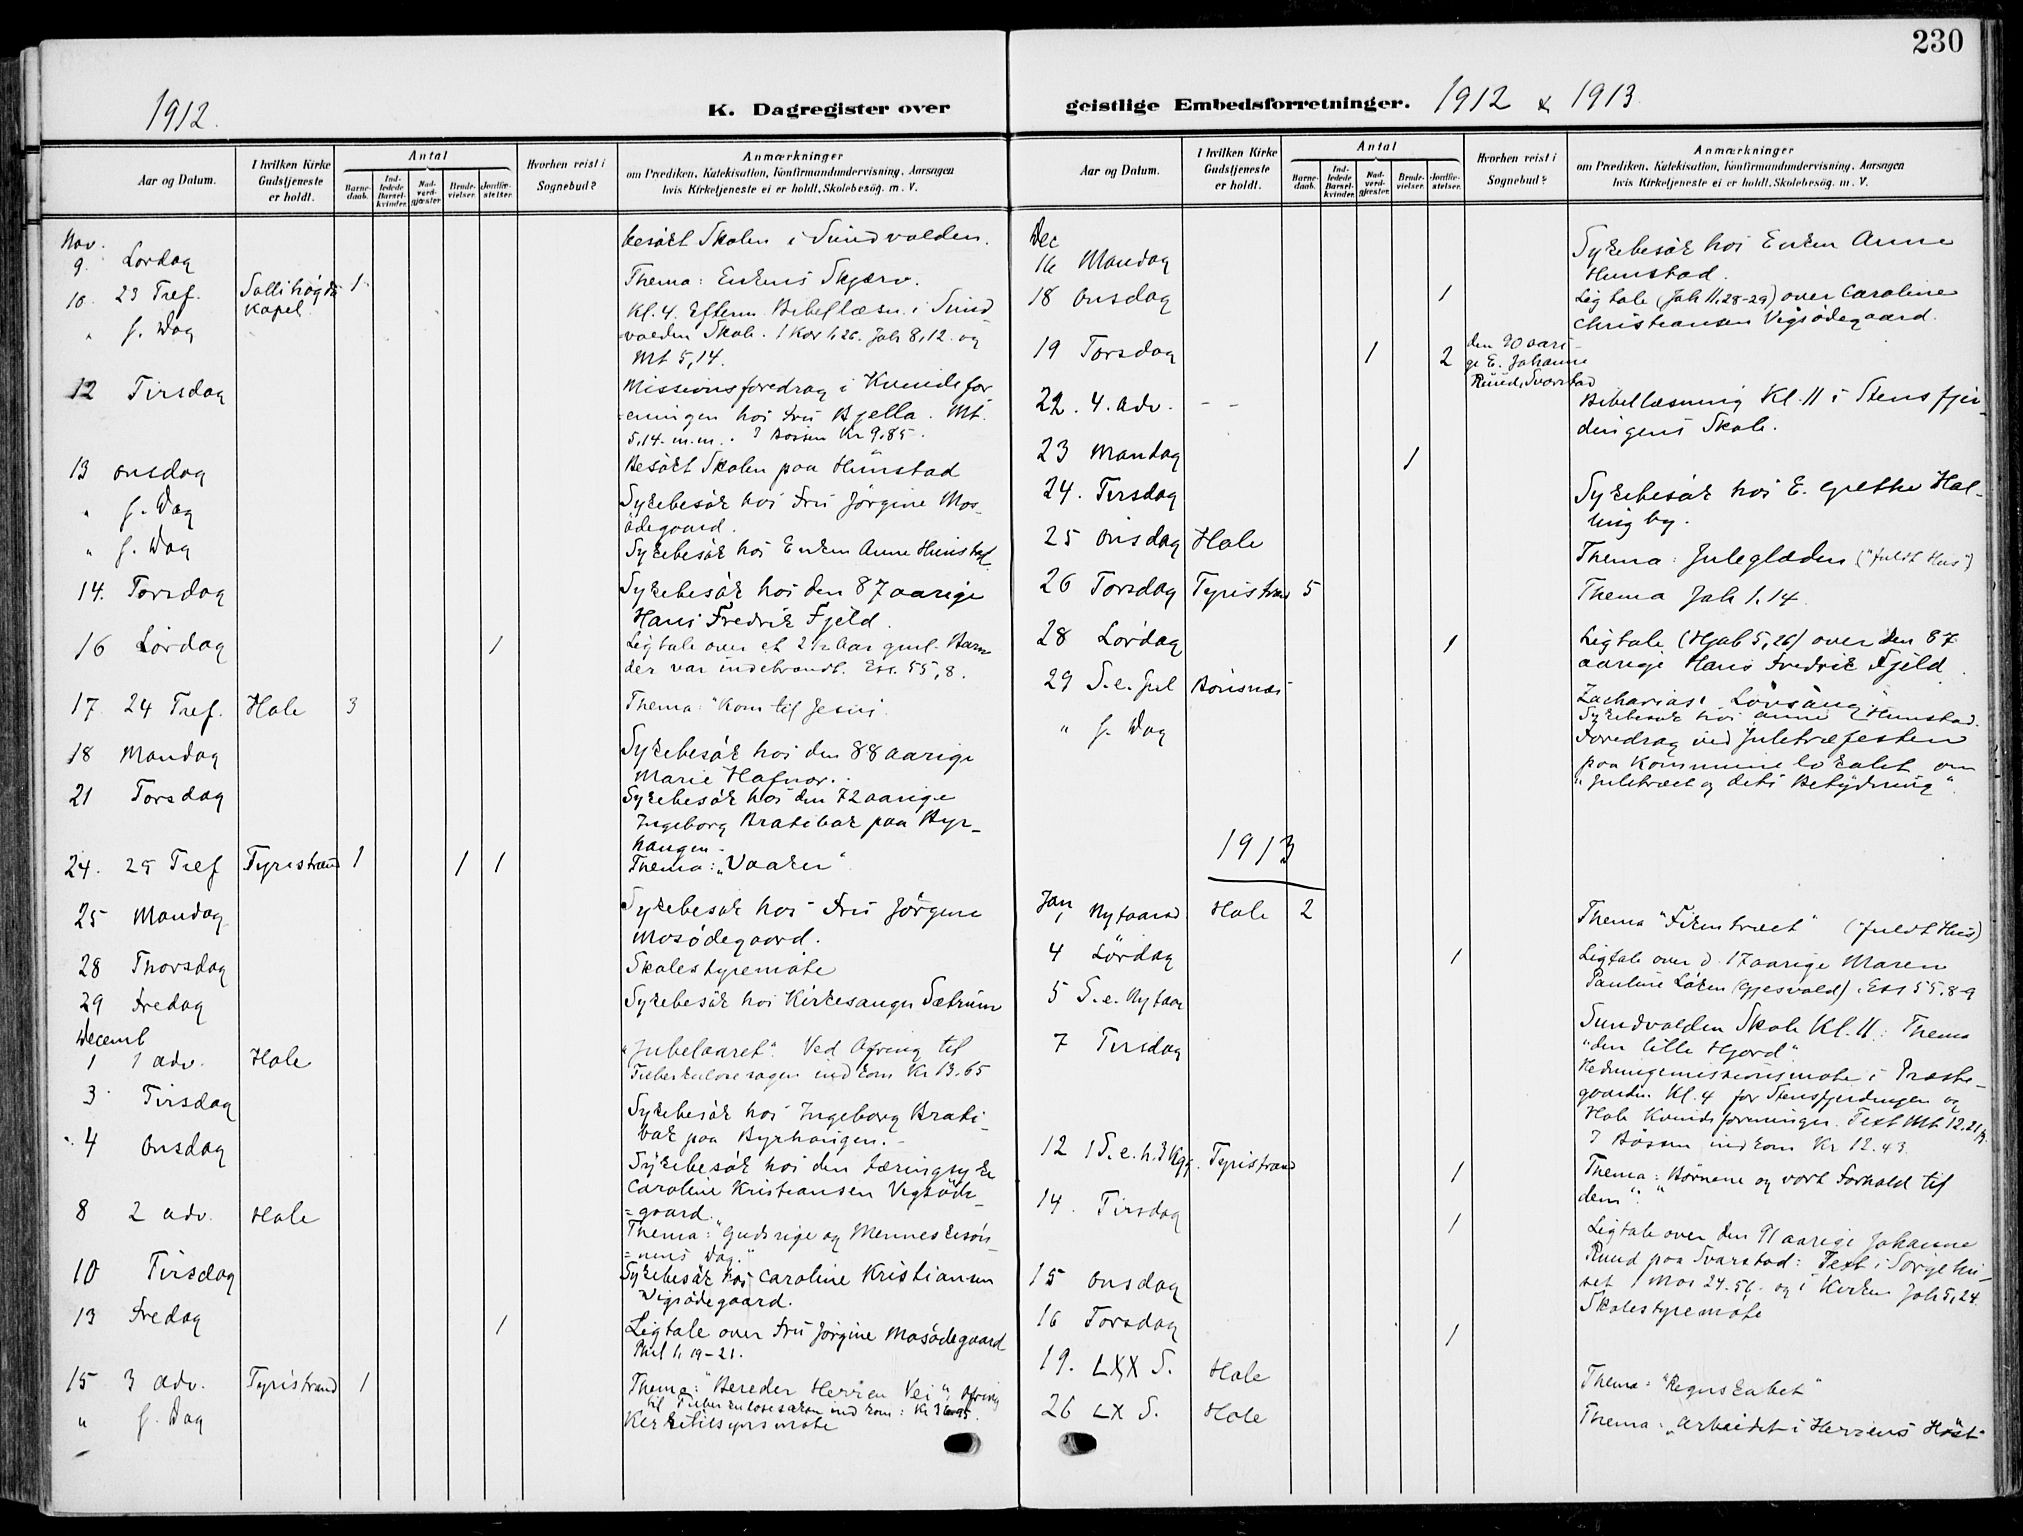 230
1912.
K. Dagregister over
geistlige Embedsforretninger. 1912 & 1913
Aar og Datum.
I hvilken Kirke Gudstjeneste er holdt.
Antal
Barnedaab.
Indledede Barselkvinder.
Nadverdgjæster.
Brudevielser.
Jordfæstelser.
Hvorhen reist i Sognebud?
Anmærkninger
om Prædiken, Katekisation, Konfirmandundervisning, Aarsagen
hvis Kirketjeneste ei er holdt, Skolebesøg. m. V.
Nov.
9. Lördag besökt Skolen i Sundvolden.
10. 23 Tref. Sollihögda Kapel 1 Thema: Enkens Skjærv.
" s. Dag Kl. 4. Efterm. Bibellæsn. i Sund
volden Skole. 1 Kor 1,26. Joh 8,12. og
Mt 5,14.
12 Tirsdag Missionsforedrag i Kvindefor
=eningen hos Fru Bjella. Mt.
5,14. m.m. I Bössen Kr 9.85.
13 onsdag Besökt Skolen paa Hunstad
" s. Dag Sykebesök hos Fru Jörgine Mos-
ödegaard.
" s. Dag Sykebesök hos Enken Anne Hunstad
14. Torsdag Sykebesök hos den 87 aarige
Hans Fredrik Fjeld.
16 Lördag 1 Ligtale over et 2 1/2 Aar gml. Barn
der var indebrændt. Es. 55,8.
17 24 Tref. Hole 3 Thema: "Kom til Jesus
18 Mandag Sykebesök hos den 88 aarige
Marie Hafnor.
21 Torsdag Sykebesök hos den 72 aarige
Ingeborg Bratibak paa Byr-
haugen.
24. 25 Tref Tyristrand 1 1 1 Thema: "Vaaken"
25 Mandag Sykebesök hos Fru Jörgine
Mosödegaard.
28 Thorsdag Skolestyremöte
29 Fredag Sykebesök hos Kirkesanger Sætrum
Decemb
1 1 adv. Hole "Jubelaaret". Ved Ofring til
Tuberkulosesagen indkom Kr 13.65
3 Tirsdag Sykebesök hos Ingeborg Brati-
bak paa Byrhaugen.
4 Onsdag Sykebesök hos den tæringsyke
Caroline Kristiansen Vegsöde-
=gaard.
8 2 adv. Hole Thema: "Guds rige og Menneskesön-
=nens Dag."
10 Tirsdag Sykebesök hos Caroline Kristiansen
Vigsödegaard.
13 Fredag 1 Ligtale over Fru Jörgine Mosödegaard
Phil 1, 19-21.
15 3 adv. Tyristrand 1 Thema: "Bereder Herren Vei", Ofring
til Tuberkulosesaken indkom: Kr
" s. Dag Kirketilsynsmöte
Aar og Datum.
I hvilken Kirke Gudstjeneste er holdt.
Antal
Barnedaab.
Indledede Barselkvinder.
Nadverdgjæster.
Brudevielser.
Jordfæstelser.
Hvorhen reist i Sognebud?
Anmærkninger
om Prædiken, Katekisation, Konfirmandundervisning, Aarsagen
hvis Kirketjeneste ei er holdt, Skolebesøg. m. V.
Dec
16 Mandag Sykebesök hos Enken Anne
Hunstad.
18 Onsdag 1 Ligtale (Joh 11,28-29) over Caroline
Christiansen Vigsödegaard.
19 Torsdag 1 2 den 90 aari-
ge E. Johanne
Ruud, Svarstad
22. 4. adv. - - Bibellæsning Kl. 11 i Stensfjer-
dingens Skole.
23 Mandag 1
24. Tirsdag Sykebesök hos E. Grethe Hal-
ling by.
25 Onsdag Hole Thema: Juleglæden ("fuldt Hus")
26 Torsdag Tyristrand 5 Thema Joh 1.14.
28 Lördag 1 Ligtale (Hjob 5,26) over den 87
aarige Hans Fredrik Fjeld.
29 S. e. Jul Bönsnes Zacharias' Lovsang
Sykebesök hos Anne Hunstad.
" s. Dag Foredrag ved Juletræfesten
paa Kommunelokalet om
"Juletræet og dets Betydning".
1913
Jan
1 Nytaarsd Hole 2 Thema "Fikentræet" (fuldt Hus)
4 Lördag 1 Ligtale over d. 17 aarige Maren
Pauline Löken (Gjesvold). Es 55.8-9
5 S. e. Nytaar Sundvolden Skole Kl. 11: Thema
"den lille Hjord".
7 Tirsdag Hedningemissionsmöte i Præste-
gaarden Kl. 4 for Stensfjerdingen og
Hole Kvindeforeninger. Text Mt. 12.21
I Bössen indkom Kr 12.43
12 1 S. e. h. 3 Kgr. Tyristrand 1 Thema: "Børnene og vort Forhold til
dem".
14. Tirsdag 1 Ligtale over den 91 aarige Johanne
Ruud paa Svarstad: Text i Sørgehu-
set 1 Mos 24.56. og i Kirken Joh 5,24.
15 Onsdag Skolestyremöte
16 Torsdag 1
19. LXX S. Hole Thema: "Regnskabet"
26 LX S. Hole Thema: "Arbeidet i Herrens Höst"